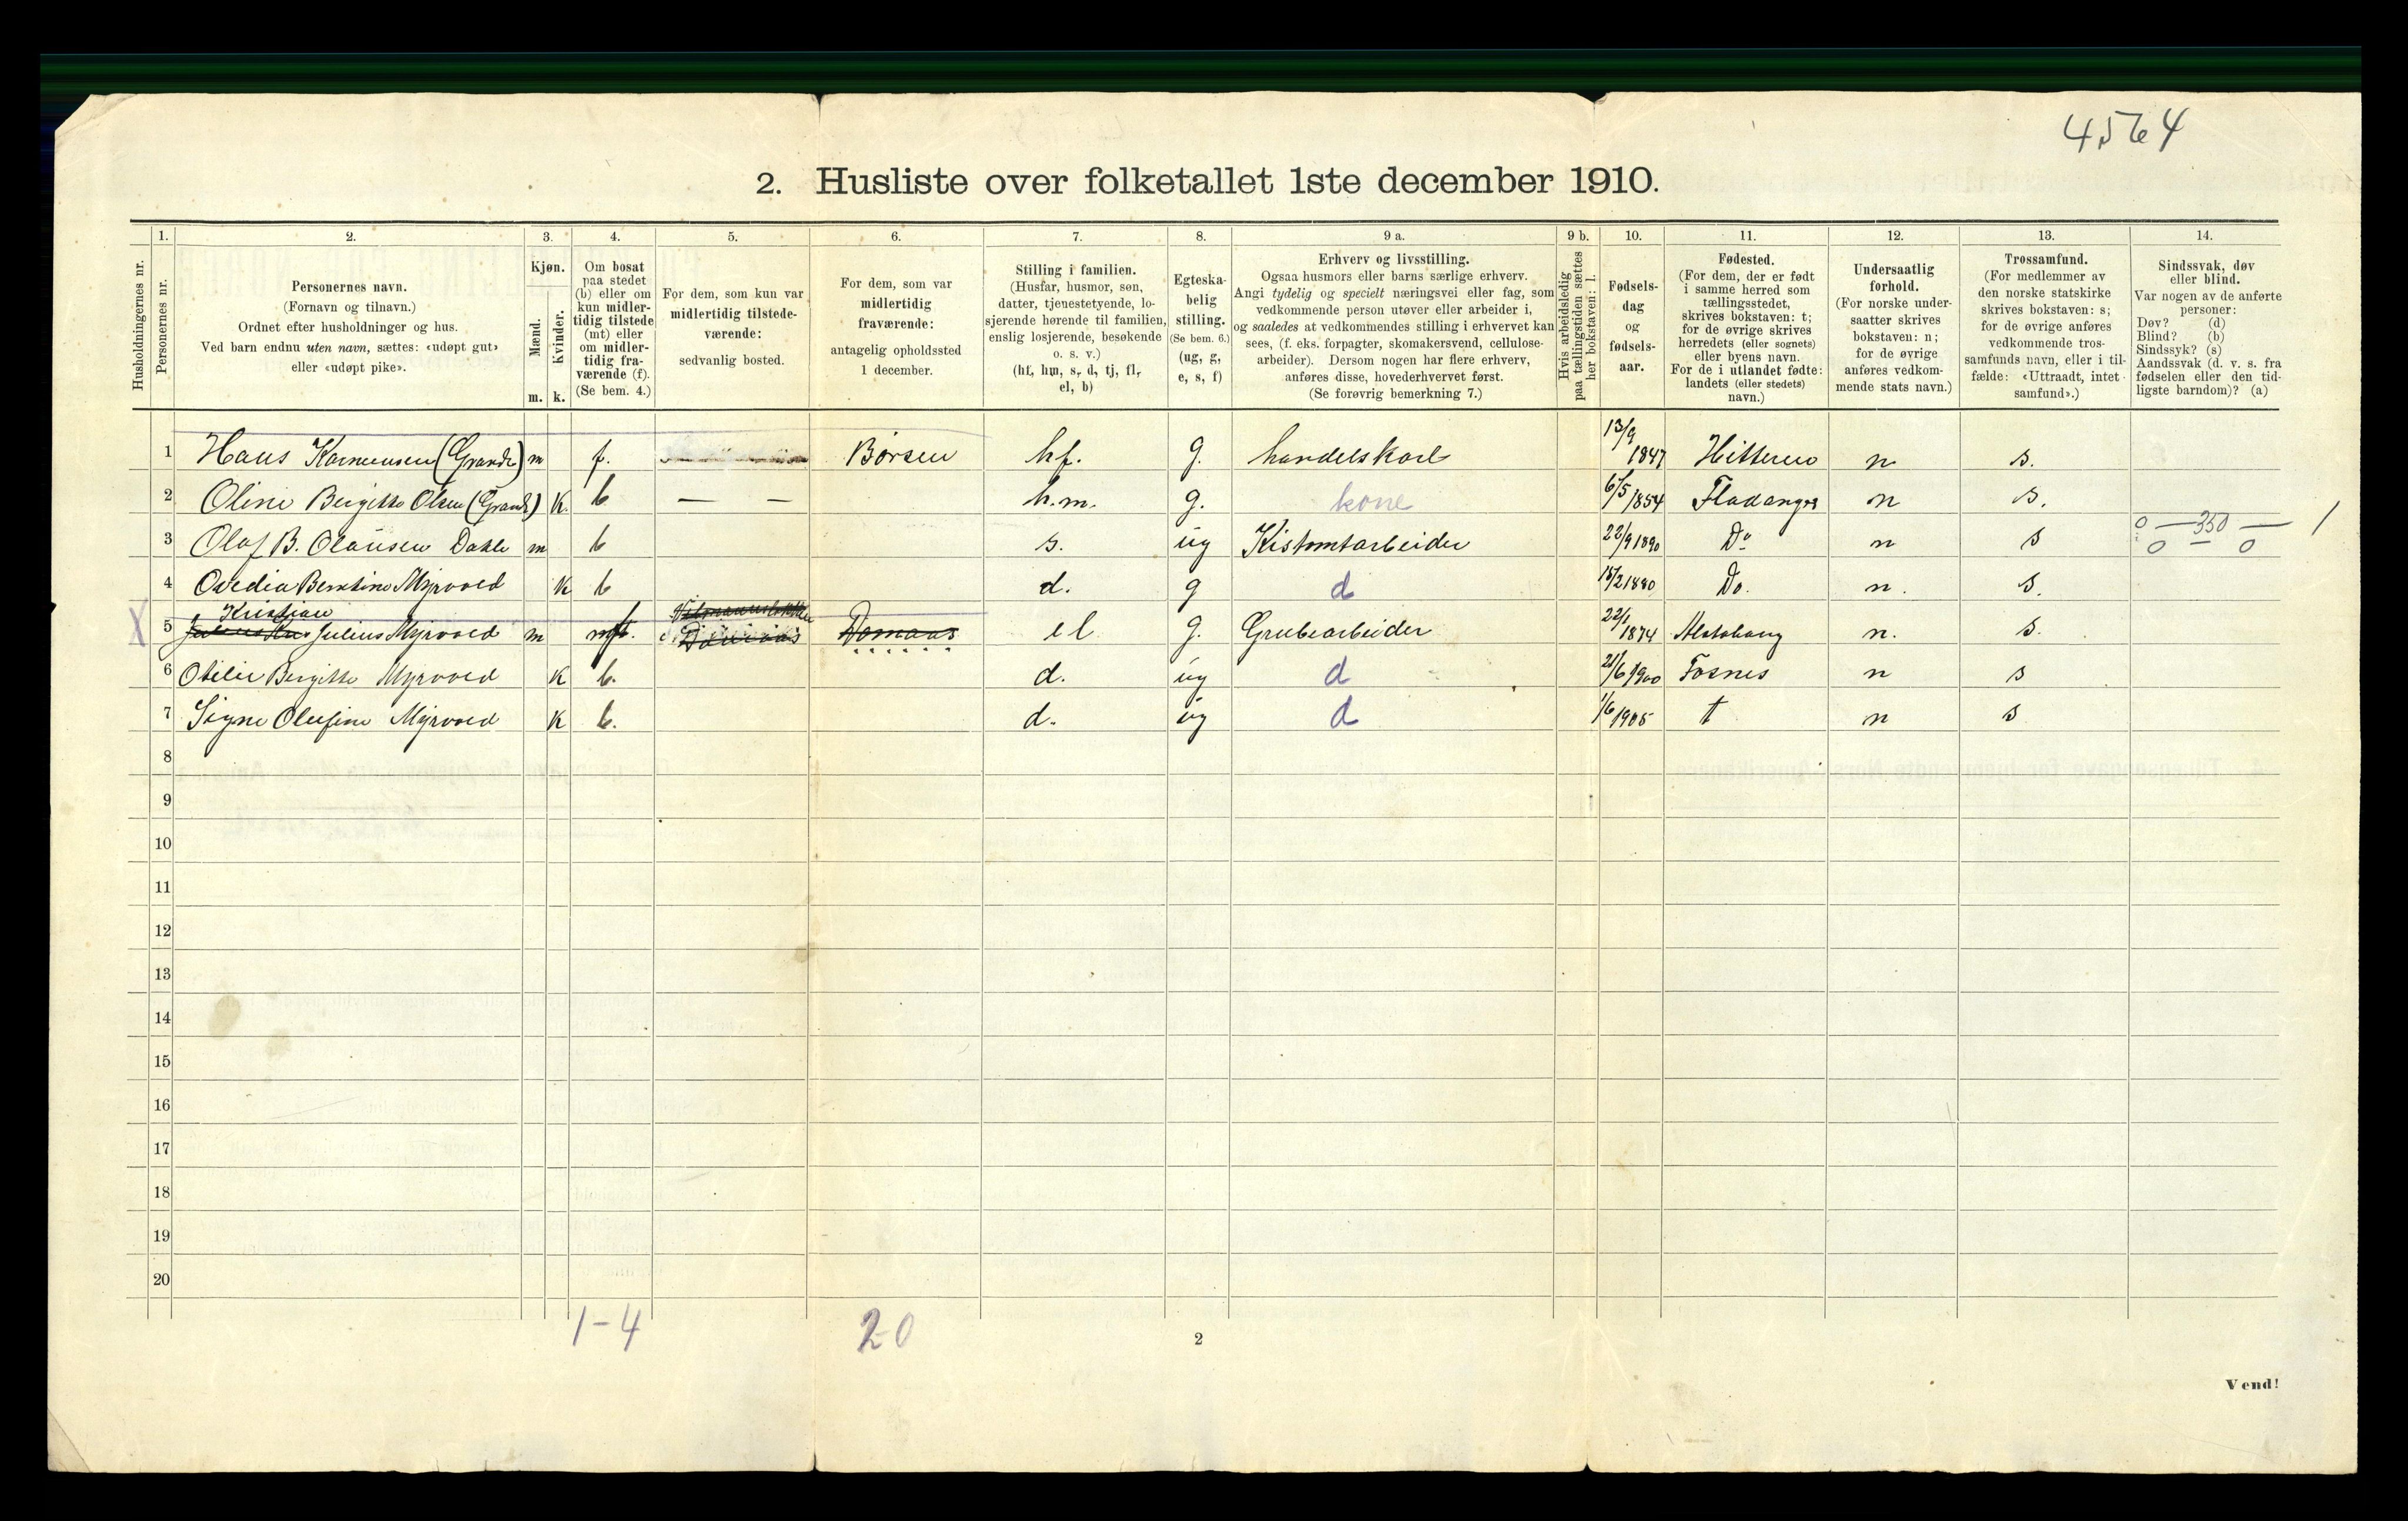 4564
2. Husliste over folketallet 1ste december 1910.
Husholdningernes nr.
1.
Personernes nr.
2.
Personernes navn.
(Fornavn og tilnavn.)
Ordnet efter husholdninger og hus.
Ved barn endnu uten navn, sættes: «udøpt gut»
eller «udøpt pike».
3.
Kjøn.
Mænd.
Kvinder.
m. k.
4.
Om bosat
paa stedet
(b) eller om
kun midler-
tidig tilstede
(mt) eller
om midler-
tidig fra-
værende (f).
(Se bem. 4.)
5.
For dem, som kun var
midlertidig tilstede-
værende:
sedvanlig bosted.
6.
For dem, som var
midlertidig
fraværende:
antagelig opholdssted
1 december.
7.
Stilling i familien.
(Husfar, husmor, søn,
datter, tjenestetyende, lo-
sjerende hørende til familien,
enslig losjerende, besøkende
o. s. v.)
(hf, hm, s, d, tj, fl,
el, b)
8.
Egteska-
belig
stilling.
(Se bem. 6.)
(ug, g,
e, s, f)
9 a.
Erhverv og livsstilling.
Ogsaa husmors eller barns særlige erhverv.
Angi tydelig og specielt næringsvei eller fag, som
vedkommende person utøver eller arbeider i,
og saaledes at vedkommendes stilling i erhvervet kan
sees, (f. eks. forpagter, skomakersvend, cellulose-
arbeider). Dersom nogen har flere erhverv,
anføres disse, hovederhvervet først.
(Se forøvrig bemerkning 7.)
9 b.
Hvis arbeidsledig
paa tællingstiden sættes
her bokstaven: l.
10.
Fødsels-
dag
og
fødsels-
aar.
11.
Fødested.
(For dem, der er født
i samme herred som
tællingsstedet,
skrives bokstaven: t;
for de øvrige skrives
herredets (eller sognets)
eller byens navn.
For de i utlandet fødte:
landets (eller stedets)
navn.)
12.
Undersaatlig
forhold.
(For norske under-
saatter skrives
bokstaven: n;
for de øvrige
anføres vedkom-
mende stats navn.)
13.
Trossamfund.
(For medlemmer av
den norske statskirke
skrives bokstaven: s;
for de øvrige anføres
vedkommende tros-
samfunds navn, eller i til-
fælde: «Uttraadt, intet
samfund».)
14.
Sindssvak, døv
eller blind.
Var nogen av de anførte
personer:
Døv? (d)
Blind? (b)
Sindssyk? (s)
Aandssvak (d. v. s. fra
fødselen eller den tid-
ligste barndom)? (a)
1 Hans (Grande) m f. Børsen hf. g. handelskarl 13/9 1847 Hitteren n s.
2 Oline Bergitte Olsen (Grande) K. b — — h.m. g. kone 6/5 1854 Fladanger n s.
3 Olaf B. Olausen Dahle m b s. ug 22/9 1890 Do n s 0 — 350 — 0 — 0 1
4 Ovedia Berntine Myrvold K b d. g d 15/2 1880 Do. n. s.
X Kristian
5 Julius Myrvold m Domaas el g. Grubearbeider 22/1 1874 Alstahaug n. s.
6 Otilie Bergitte Myrvold K b. d. ug d 21/6 1900 Fosnes n s
7 Signe Olufine Myrvold K b. d. ug d 1/6 1905 t n s
8
9
10
11
12
13
14
15
16
17
18
19
20
1-4 20
2
Vend!